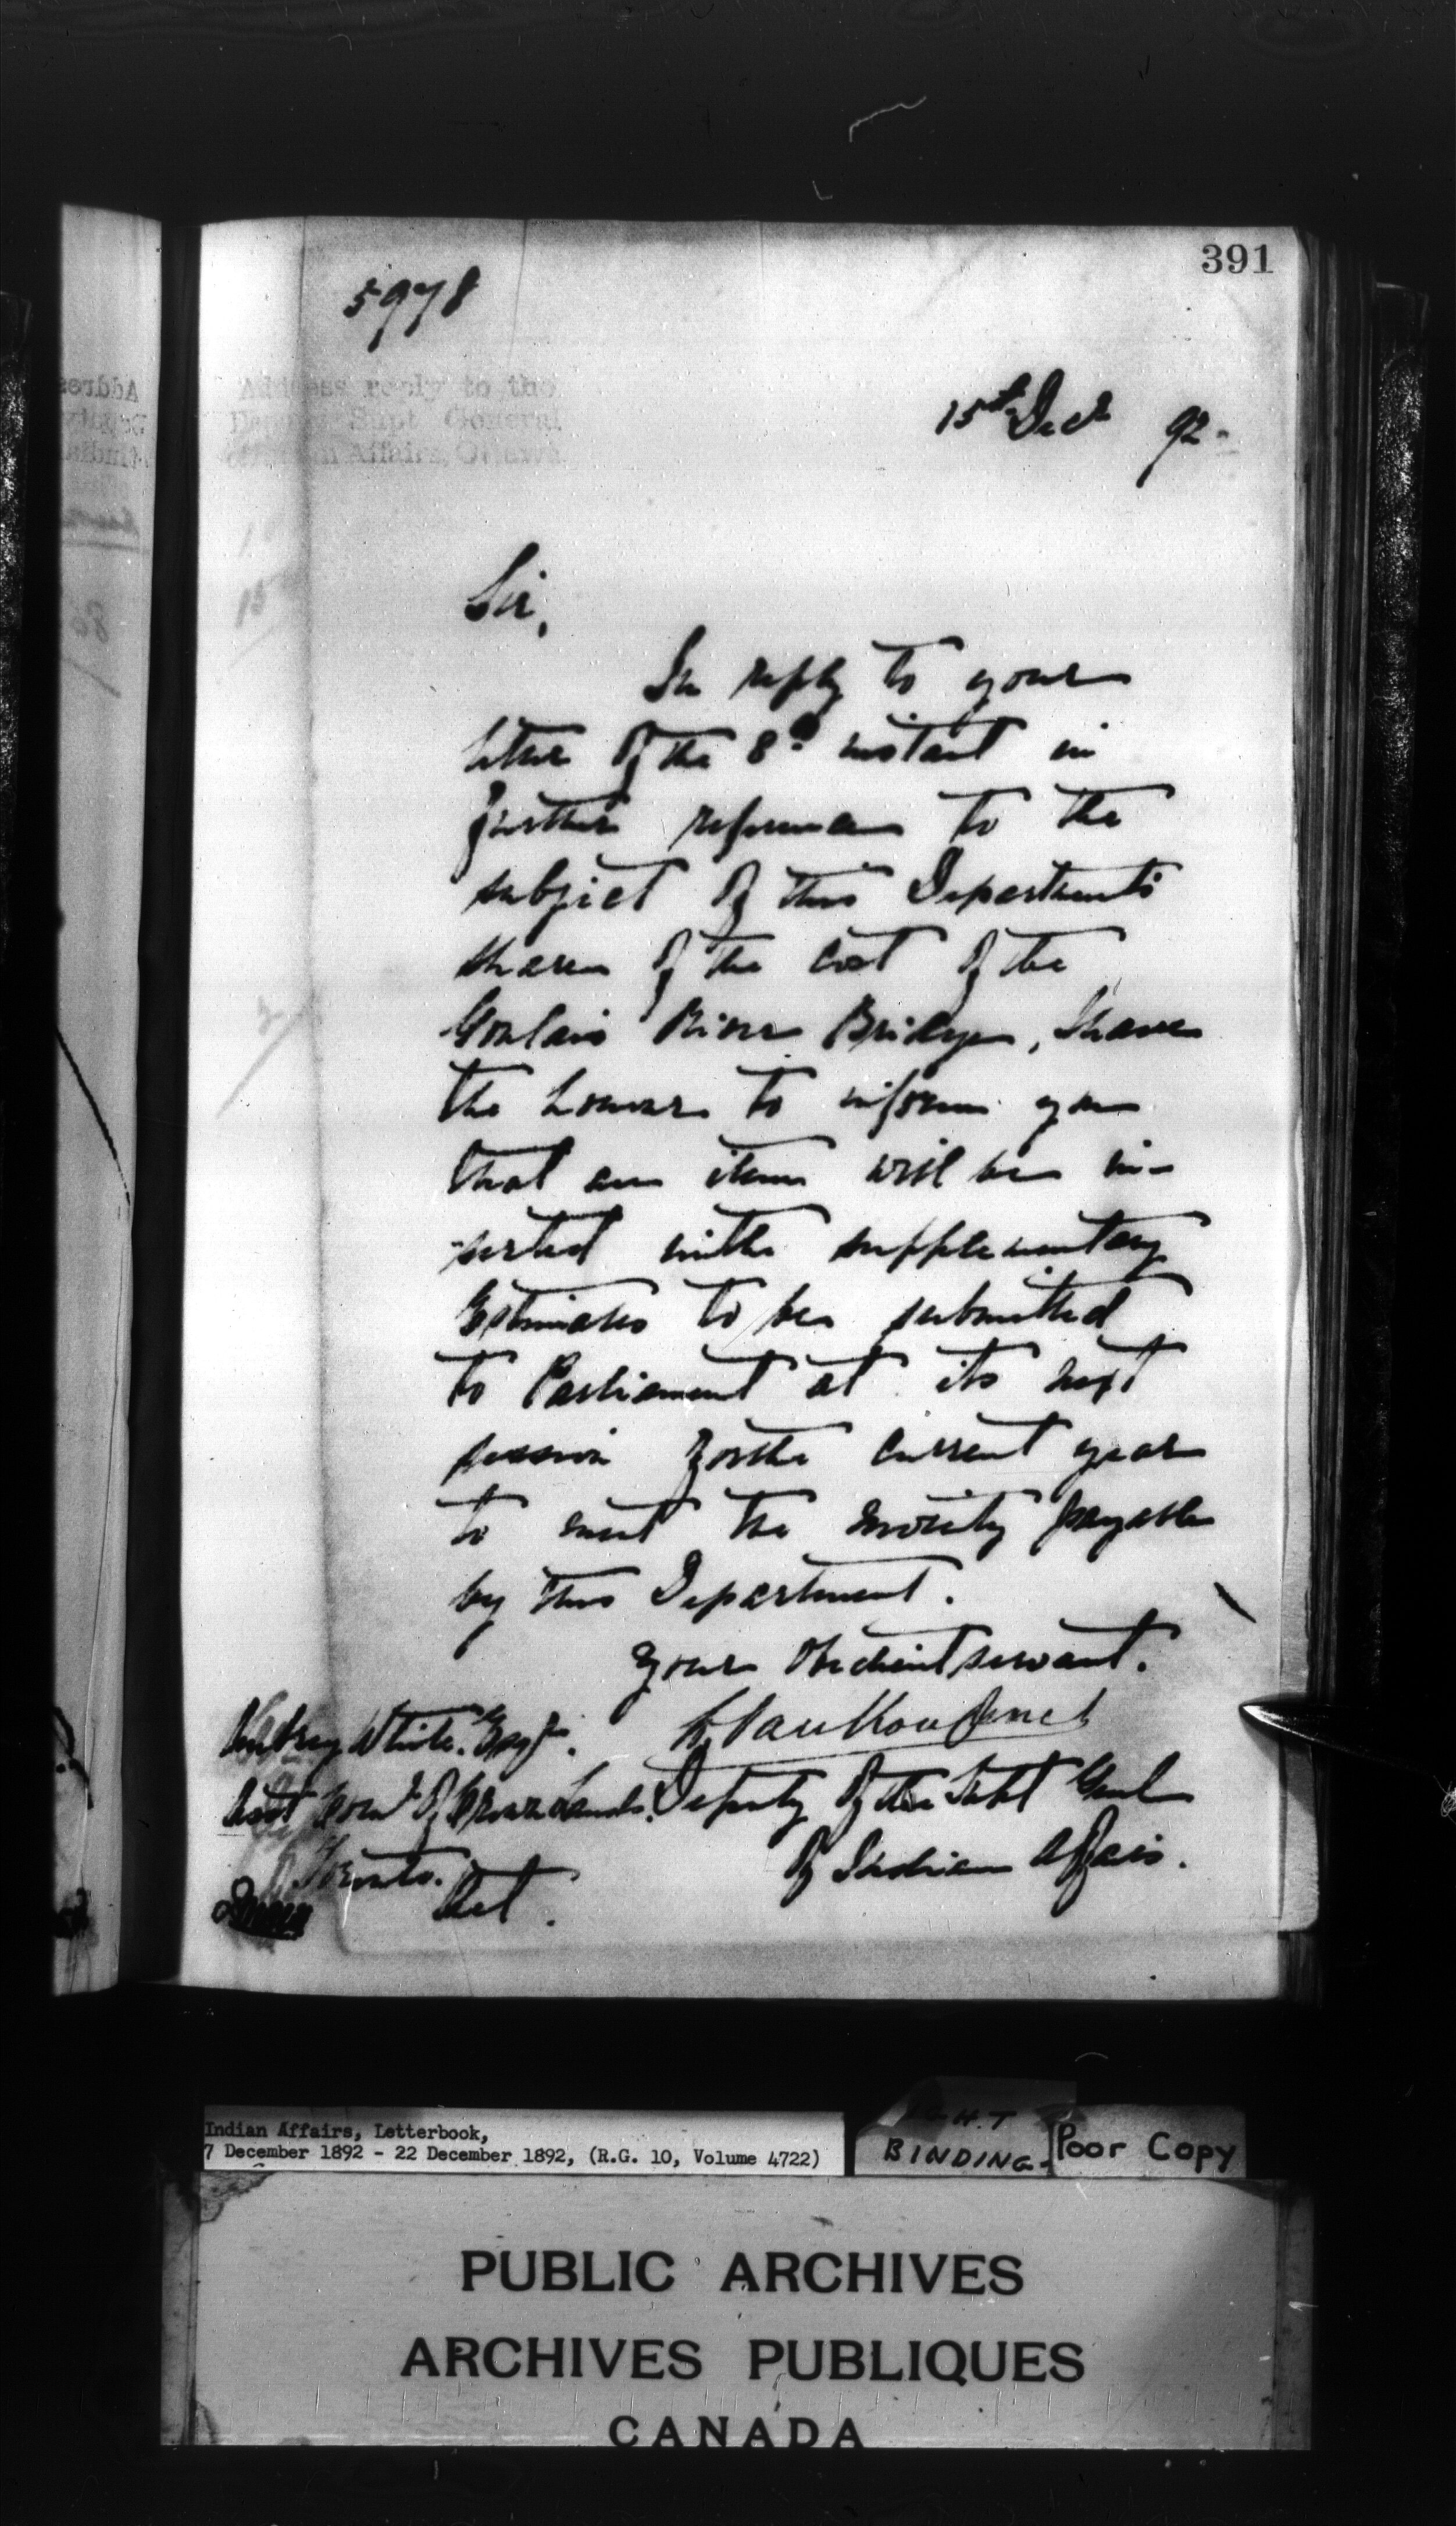 391
5978
Address reply to the
Deputy Supt General
of Indian Affairs, Ottawa.
15th Decr 92-
Sir,
In reply to your
letter of the 8th instant in
further reference to the
subject of this Department's
share of the cost of the
Goulais River Bridge, I have
the honour to inform you
that an item will be in-
serted in the supplementary
Estimates to be submitted
to Parliament at its next
session for the current year
to meet the moiety payable
by this Department.
Your obedient servant.
L. Vankoughnet
Deputy of the Supt Genl
of Indian Affairs.
Aubrey White. Esqr.
Asst Comr of Crown Lands.
Toronto.
Ont.
Indian Affairs, Letterbook,
7 December 1892 - 22 December 1892, (R.G. 10, Volume 4722)
BINDING-
Poor Copy
PUBLIC ARCHIVES
ARCHIVES PUBLIQUES
CANADA